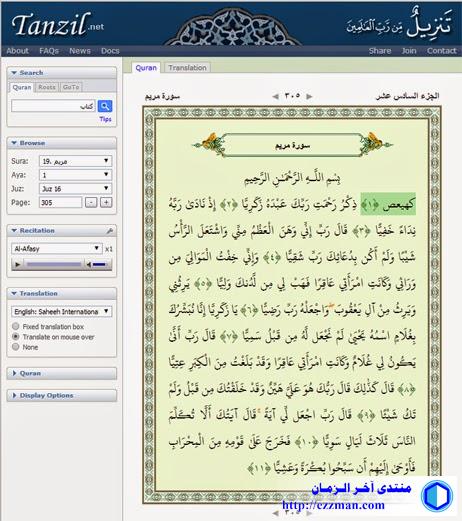 Tanzil.net
تَنزِيلٌ مِّن رَّبِّ الْعَالَمِينَ
About FAQs News Docs
Share Join Contact
Search
Quran Roots GoTo
كتاب
Tips
Browse
Sura: 19. مريم
Aya: 1
Juz: Juz 16
Page: 305 - +
Recitation
Al-Afasy x1
Translation
English: Saheeh Internationa
Fixed translation box
Translate on mouse over
None
Quran
Display Options
Quran Translation
الجزء السادس عشر
٣٠٥
سورة مريم
سورة مريم
بِسْمِ اللَّـهِ الرَّحْمَـٰنِ الرَّحِيمِ
كهيعص ﴿١﴾ ذِكْرُ رَحْمَتِ رَبِّكَ عَبْدَهُ زَكَرِيَّا ﴿٢﴾ إِذْ نَادَىٰ رَبَّهُ
نِدَاءً خَفِيًّا ﴿٣﴾ قَالَ رَبِّ إِنِّي وَهَنَ الْعَظْمُ مِنِّي وَاشْتَعَلَ الرَّأْسُ
شَيْبًا وَلَمْ أَكُن بِدُعَائِكَ رَبِّ شَقِيًّا ﴿٤﴾ وَإِنِّي خِفْتُ الْمَوَالِيَ مِن
وَرَائِي وَكَانَتِ امْرَأَتِي عَاقِرًا فَهَبْ لِي مِن لَّدُنكَ وَلِيًّا ﴿٥﴾ يَرِثُنِي
وَيَرِثُ مِنْ آلِ يَعْقُوبَ ۖ وَاجْعَلْهُ رَبِّ رَضِيًّا ﴿٦﴾ يَا زَكَرِيَّا إِنَّا نُبَشِّرُكَ
بِغُلَامٍ اسْمُهُ يَحْيَىٰ لَمْ نَجْعَل لَّهُ مِن قَبْلُ سَمِيًّا ﴿٧﴾ قَالَ رَبِّ أَنَّىٰ
يَكُونُ لِي غُلَامٌ وَكَانَتِ امْرَأَتِي عَاقِرًا وَقَدْ بَلَغْتُ مِنَ الْكِبَرِ عِتِيًّا
﴿٨﴾ قَالَ كَذَٰلِكَ قَالَ رَبُّكَ هُوَ عَلَيَّ هَيِّنٌ وَقَدْ خَلَقْتُكَ مِن قَبْلُ وَلَمْ
تَكُ شَيْئًا ﴿٩﴾ قَالَ رَبِّ اجْعَل لِّي آيَةً ۚ قَالَ آيَتُكَ أَلَّا تُكَلِّمَ
النَّاسَ ثَلَاثَ لَيَالٍ سَوِيًّا ﴿١٠﴾ فَخَرَجَ عَلَىٰ قَوْمِهِ مِنَ الْمِحْرَابِ
فَأَوْحَىٰ إِلَيْهِمْ أَن سَبِّحُوا بُكْرَةً وَعَشِيًّا ﴿١١﴾
٣٠٥
منتدى آخر الزمان
http://ezzman.com